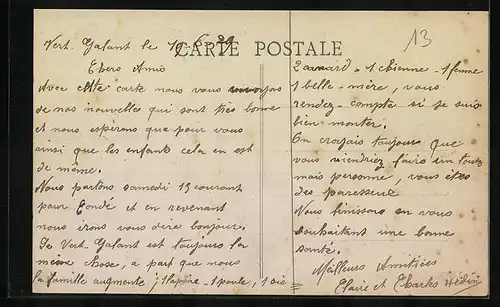 Vert-Galant le 10-6-29
CARTE POSTALE
13
Chers Amis
Avec cette carte nous vous envoyons
de nos nouvelles qui sont très bonne
et nous espérons que pour vous
ainsi que les enfants cela en est
de même.
Nous partons samedi 15 courant
pour Condé et en revenant
nous irons vous dire bonjour.
Le Vert-Galant est toujours la
même chose, a part que nous
la famille augmente; 1 lapine - 1 poule, 1 oie
2 canard - 1 chienne - 1 femme
1 belle - mère, vous
rendez - compte si je suis
bien monter.
On croyais toujours que
vous viendriez faire un tour
mais personne, vous êtes
des paresseux
Nous finissons en vous
souhaitant une bonne
santé.
Meilleurs Amitiées
Claire et Charles